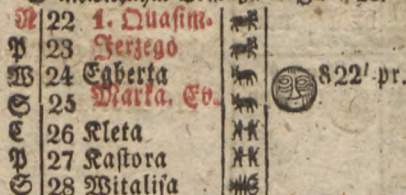 N 22 1. Quasim.
P 23 Jerzego
W 24 Egberta 822' pr.
S 25 Marka. Ev.
C 26 Kleta
P 27 Kastora
S 28 Witalisa